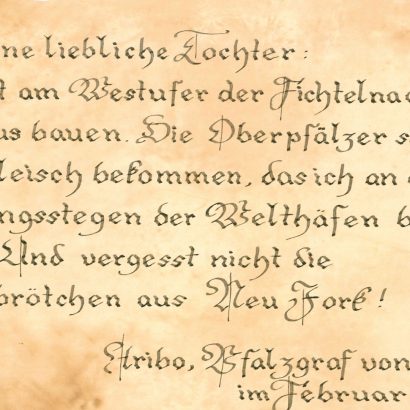 ne liebliche Tochter:
t am Westufer der Fichtelnac
us bauen. Die Oberpfälzer s
leisch bekommen, das ich an
ngsstegen der Welthäfen b
Und vergesst nicht die
brötchen aus Neu York!
Aribo, Pfalzgraf von
im Februar